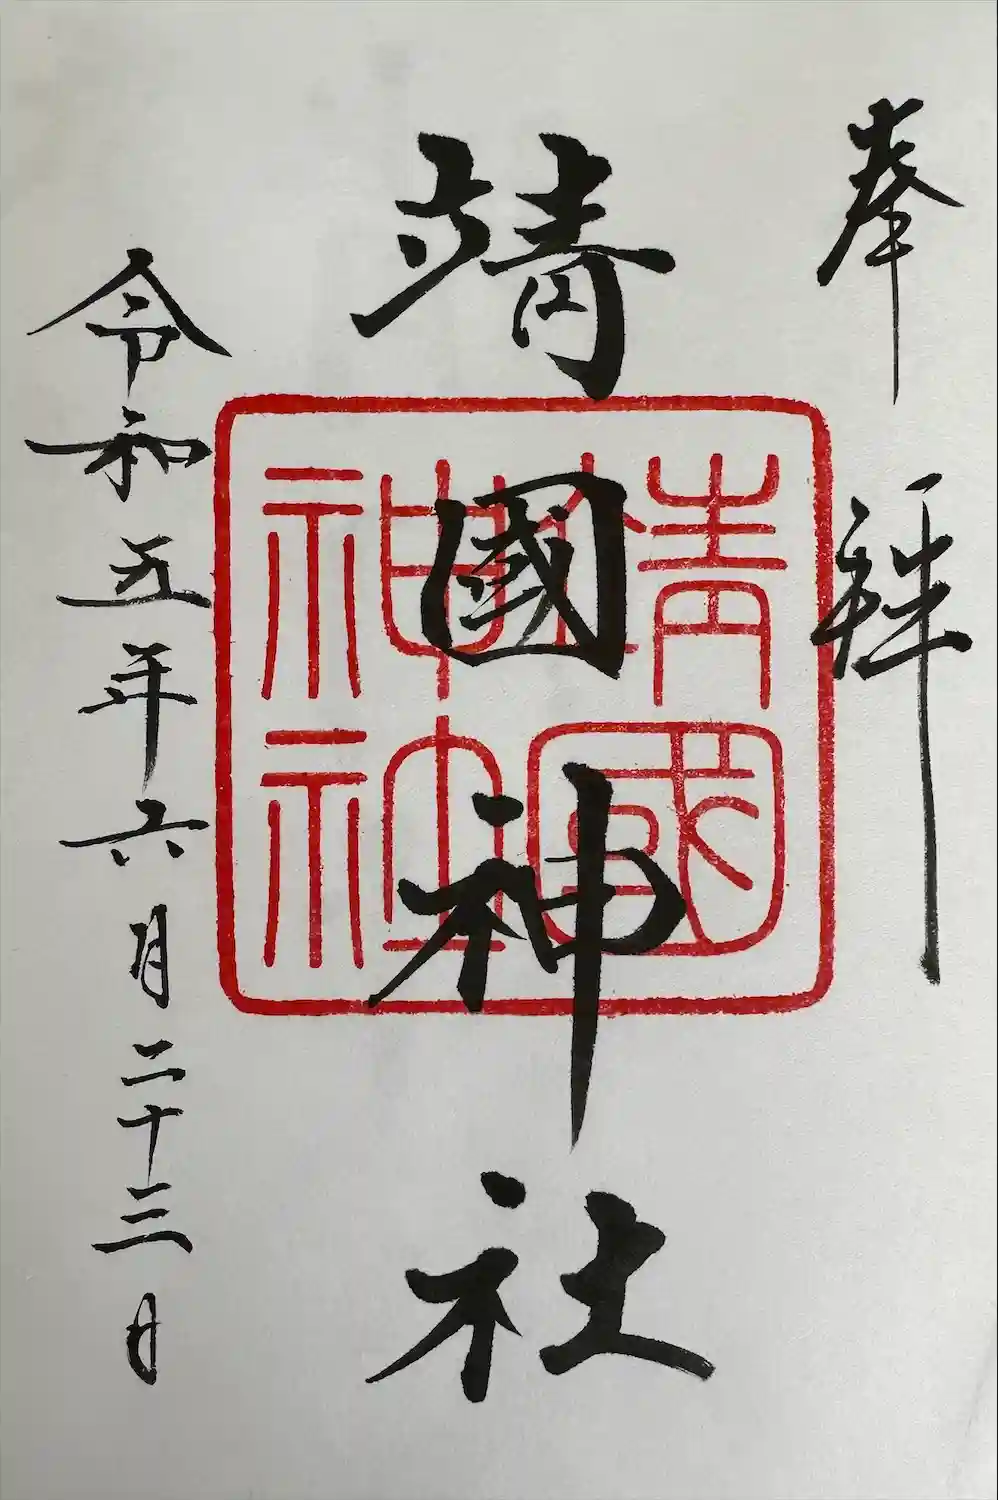 奉拝
靖國神社
靖國神社
令和五年六月二十三日